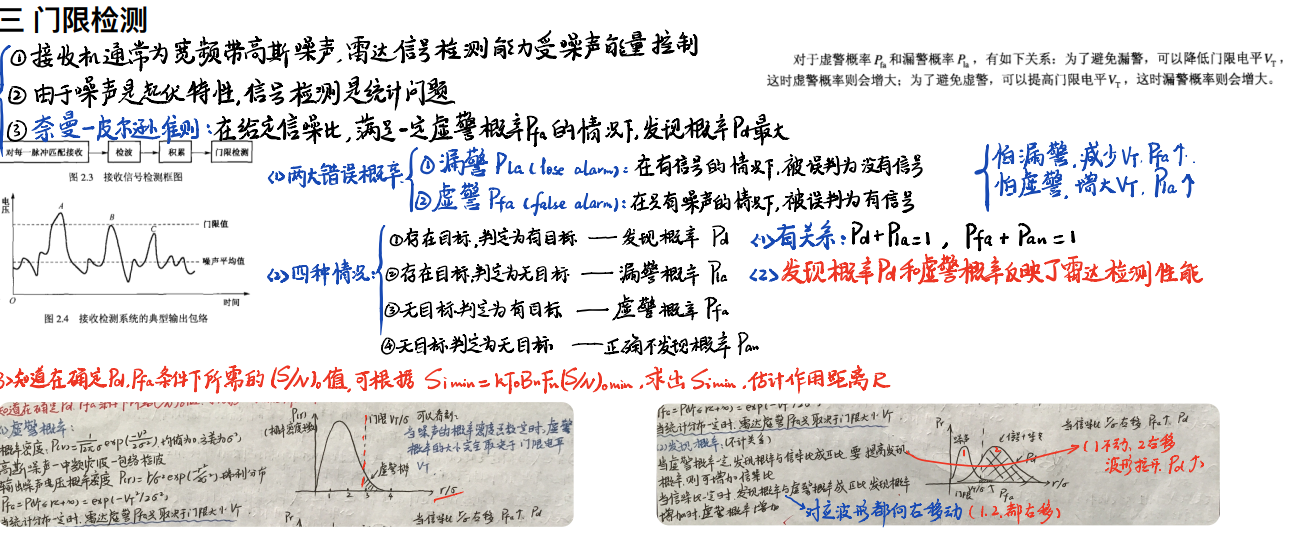 三 门限检测
①接收机通常为宽频带高斯噪声,雷达信号检测能力受噪声能量控制
②由于噪声是起伏特性,信号检测是统计问题
③奈曼—皮尔逊准则:在给定信噪比,满足一定虚警概率Pfa的情况下,发现概率Pd最大
对于虚警概率 Pfa 和漏警概率 Pla,有如下关系:为了避免漏警,可以降低门限电平VT,
这时虚警概率则会增大;为了避免虚警,可以提高门限电平VT,这时漏警概率则会增大。
对每一脉冲匹配接收 检波 积累 门限检测
图 2.3 接收信号检测框图
电压
A
B
C
门限值
噪声平均值
O
时间
图 2.4 接收检测系统的典型输出包络
<1>两大错误概率:
①漏警 Pla (lose alarm):在有信号的情况下,被误判为没有信号
②虚警 Pfa (false alarm):在只有噪声的情况下,被误判为有信号
怕漏警,减少VT,Pfa↑.
怕虚警,增大VT,Pla↑
<2>四种情况:
①存在目标,判定为有目标 — 发现概率 Pd
②存在目标,判定为无目标 — 漏警概率 Pla
③无目标,判定为有目标 — 虚警概率 Pfa
④无目标,判定为无目标 — 正确不发现概率 Pan
<1>有关系:Pd+Pla=1,Pfa+Pan=1
<2>发现概率Pd和虚警概率反映了雷达检测性能
3>知道在确定Pd,Pfa条件下所需的(S/N)o值,可根据 Simin=kToBnFn(S/N)omin,求出Simin,估计作用距离R
虚警概率:
高斯噪声→中频滤波→包络检波
Pfa=P(VT≤r<+∞)=exp(-VT²/2σ²)
当统计分布一定时,雷达虚警Pfa只取决于门限大小VT
P(r)
(概率密度函数)
门限VT/σ
可以看到:
当噪声的概率密度函数定时,虚警
概率的大小完全取决于门限电平
VT.
虚警概率
1 2 3 4
r/σ
Pr
当信噪比 右移 Pfa↑ Pd
当统计分布一定时,雷达虚警Pfa只取决于门限大小VT
<2>发现概率:
当虚警概率一定,发现概率与信噪比成正比,要提高发现
概率,则可增加信噪比
当信噪比一定时,发现概率与虚警概率成正比,发现概率
增加时,虚警概率增加
Pr
噪声
信号+噪声
1
2
Pd
门限
VT/σ
Pfa
r/σ
当信噪比 右移 Pfa↑ Pd
(1)不动,2右移
波形拉开,Pd↑)
对应波形都向右移动(1.2.都右移)